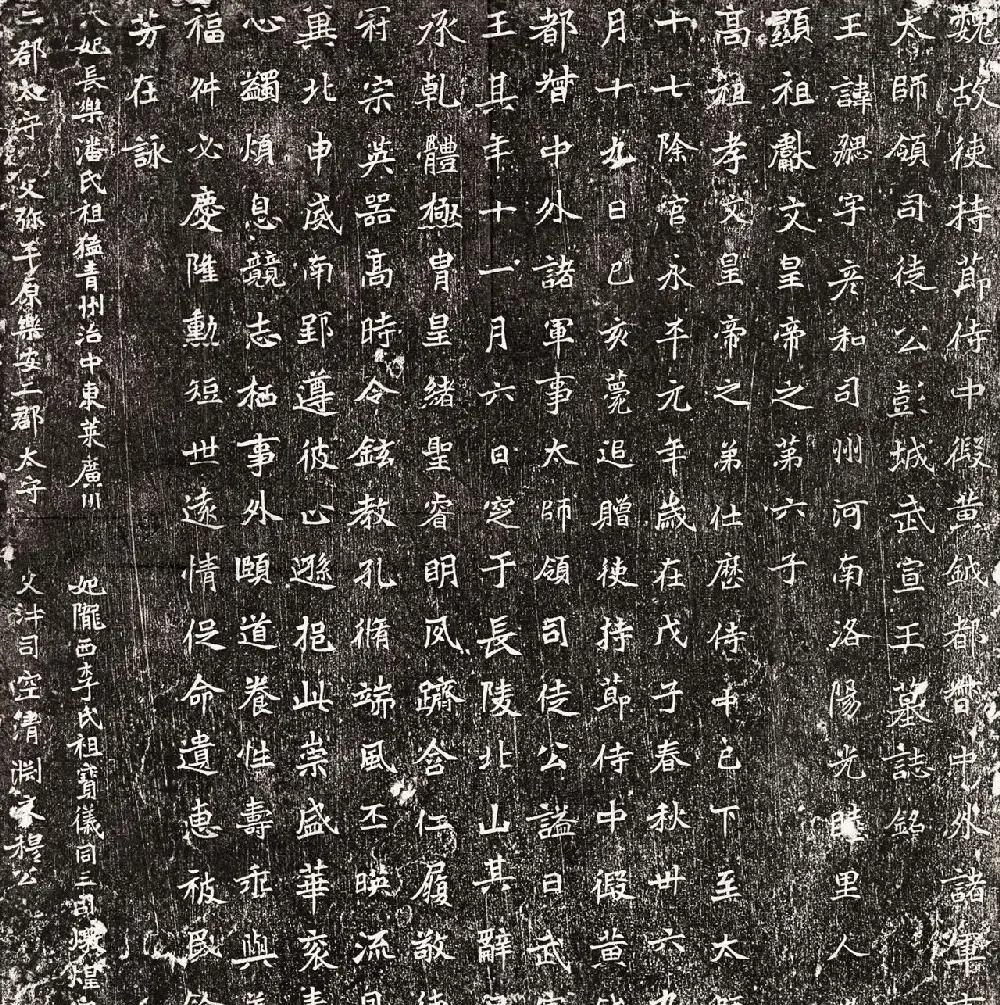 魏故使持節侍中假黃鉞都督中外諸軍
太師領司徒公彭城武宣王墓誌銘
王諱勰字彥和司州河南洛陽光睦里人
顯祖獻文皇帝之第六子
高祖孝文皇帝之弟仕歷侍中已下至太
十七除官永平元年歲在戊子春秋卅六九
月十九日己亥薨追贈使持節侍中假黃
都督中外諸軍事太師領司徒公諡曰武
王其年十一月六日窆于長陵北山其辭
承乹體極冑皇緒聖睿明夙躋含仁履敬德
冠宗英器高時令鉉教孔脩端風丕映流
巽北申威南郢遵彼止遜挹此崇盛華袞
心蠲煩息競志栖事外頤道養性壽乖與
福舛必慶隆勳短世遠情促命遺惠被民
芳在詠
太妃長樂潘氏祖猛青州治中東萊廣川
二郡太守 父弥平原樂安二郡太守
妃隴西李氏祖寶儀同三司燉煌
父沖司空清淵文穆公